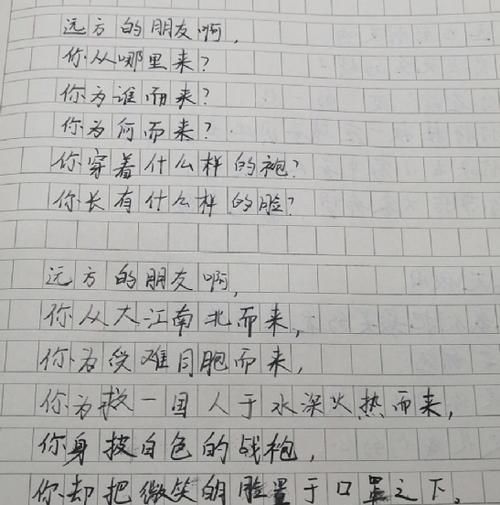 远方的朋友啊,
你从哪里来?
你为谁而来?
你为何而来?
你穿着什么样的袍?
你长有什么样的脸?
远方的朋友啊,
你从大江南北而来,
你为受难同胞而来,
你为救一国人于水深火热而来,
你身披白色的战袍,
你却把微笑的脸置于口罩之下。